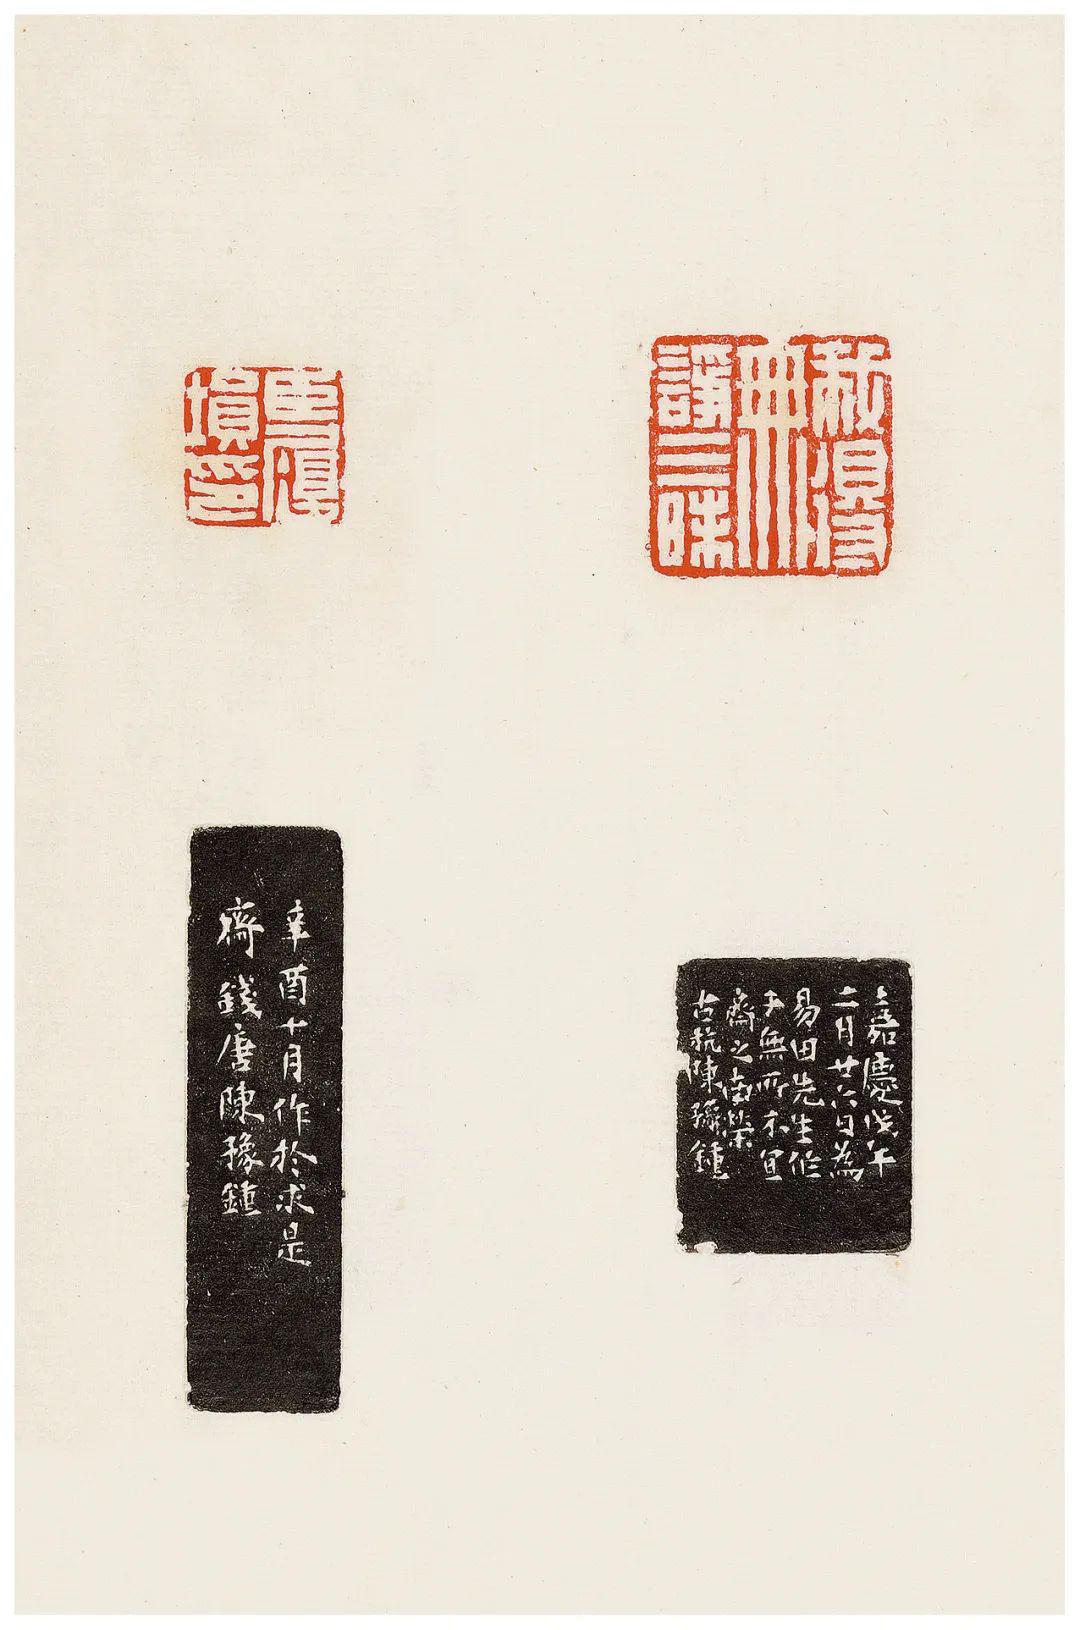 我得
無
諍三昧
塤印
嘉慶戊午
二月廿六日為
易田先生作
于無所不宜
齋之南榮
古杭陳豫鍾
辛酉十月作於求是
齋錢唐陳豫鍾